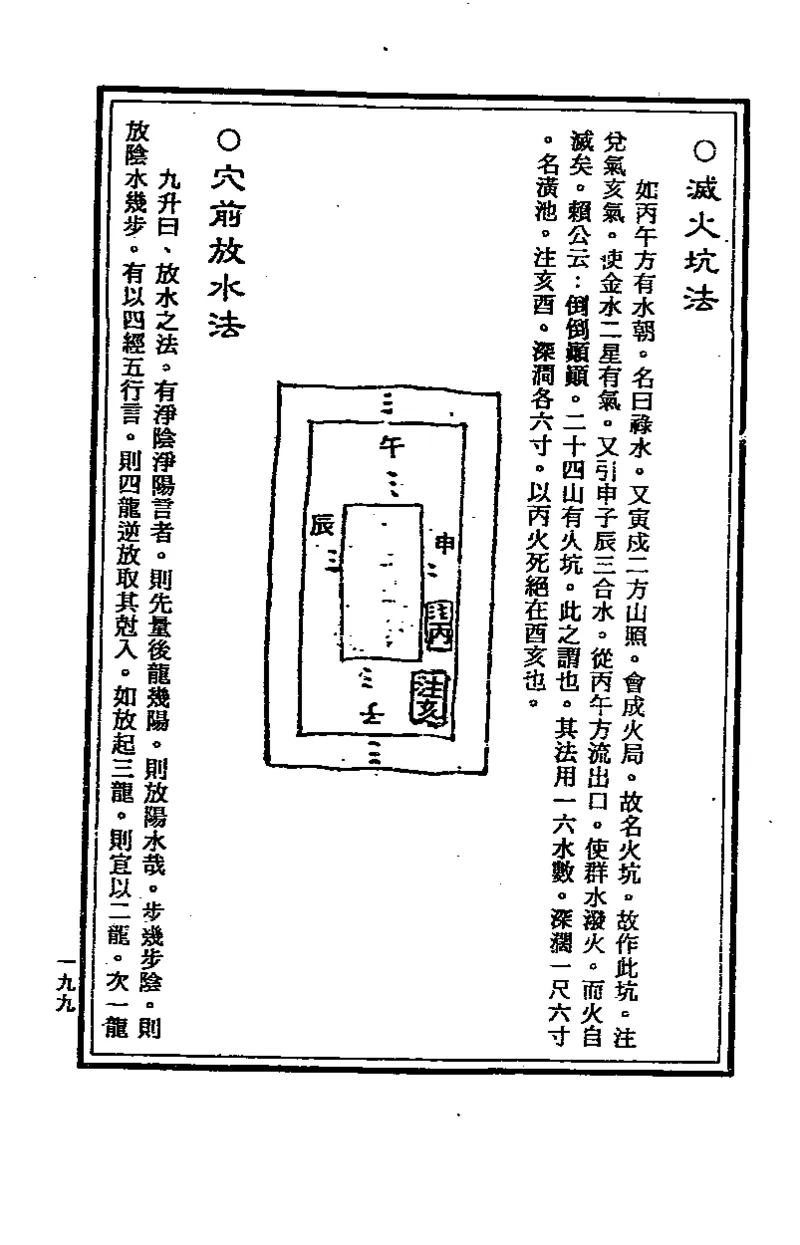 ○滅火坑法
如丙午方有水朝。名曰祿水。又寅戍二方山照。會成火局。故名火坑。故作此坑。注
兌氣亥氣。使金水二星有氣。又引申子辰三合水。從丙午方流出口。使群水潑火。而火自
滅矣。賴公云：倒倒顚顚。二十四山有火坑。此之謂也。其法用一六水數。深濶一尺六寸
。名潢池。注亥酉。深濶各六寸。以丙火死絕在酉亥也。
三
午
三
辰
三
申
二
注丙
注亥
三
子
三
○穴前放水法
九升曰、放水之法。有淨陰淨陽言者。則先量後龍幾陽。則放陽水哉。步幾步陰。則
放陰水幾步。有以四經五行言。則四龍逆放取其尅入。如放起三龍。則宜以二龍。次一龍
一九九